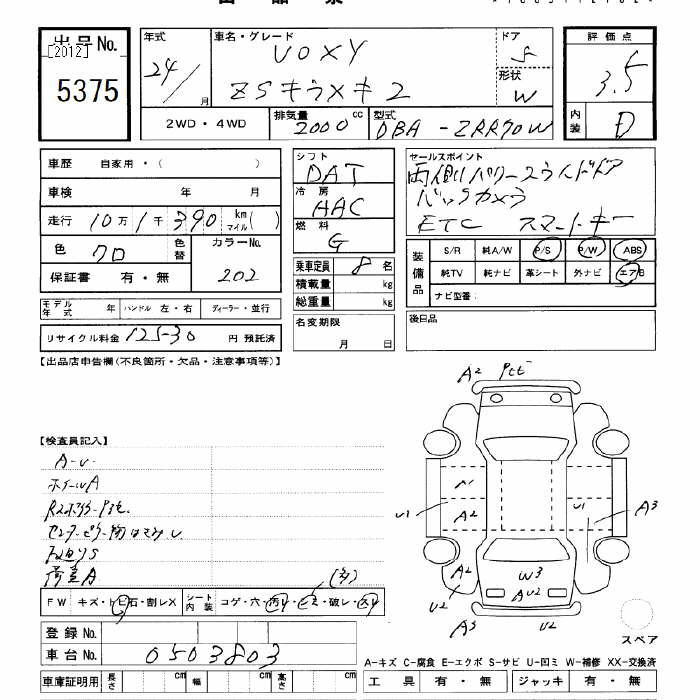 出品No.
[2012]
5375
年式
24/
月
車名・グレード
VOXY
ZSキラメキ2
ドア
5
形状
W
評価点
3.5
内装
D
2WD・4WD
排気量
2000 cc
型式
DBA-ZRR70W
車歴 自家用・( )
車検 年 月
走行 10万1千390 km マイル( )
色 クロ
色替
カラーNo. 202
保証書 有・無
モデル年式 年 ハンドル 左・右 ディーラー・並行
リサイクル料金 12530 円 預託済
シフト
DAT
冷房
AAC
燃料
G
乗車定員 8 名
積載量 kg
総重量 kg
名変期限
月 日
セールスポイント
両側パワースライドドア
バックカメラ
ETC スマートキー
装備品
S/R 純A/W P/S P/W ABS
純TV 純ナビ 革シート 外ナビ エアB
ナビ型番:
後日品
【出品店申告欄(不良箇所・欠品・注意事項等)】
【検査員記入】
A-U.
ホイールA
荷室A
(多)
FW キズ・トビ石・割レX
シート内装 コゲ・穴・汚レ・破レ・スレ
登録No.
車台No. 0503803
車庫証明用 長さ cm 幅 cm 高さ cm
A2
A1
U1
A2
U1
A3
A2
U2
W3
AU2
A3
U2
スペア
A-キズ C-腐食 E-エクボ S-サビ U-凹ミ W-補修 XX-交換済
工具 有・無 ジャッキ 有・無